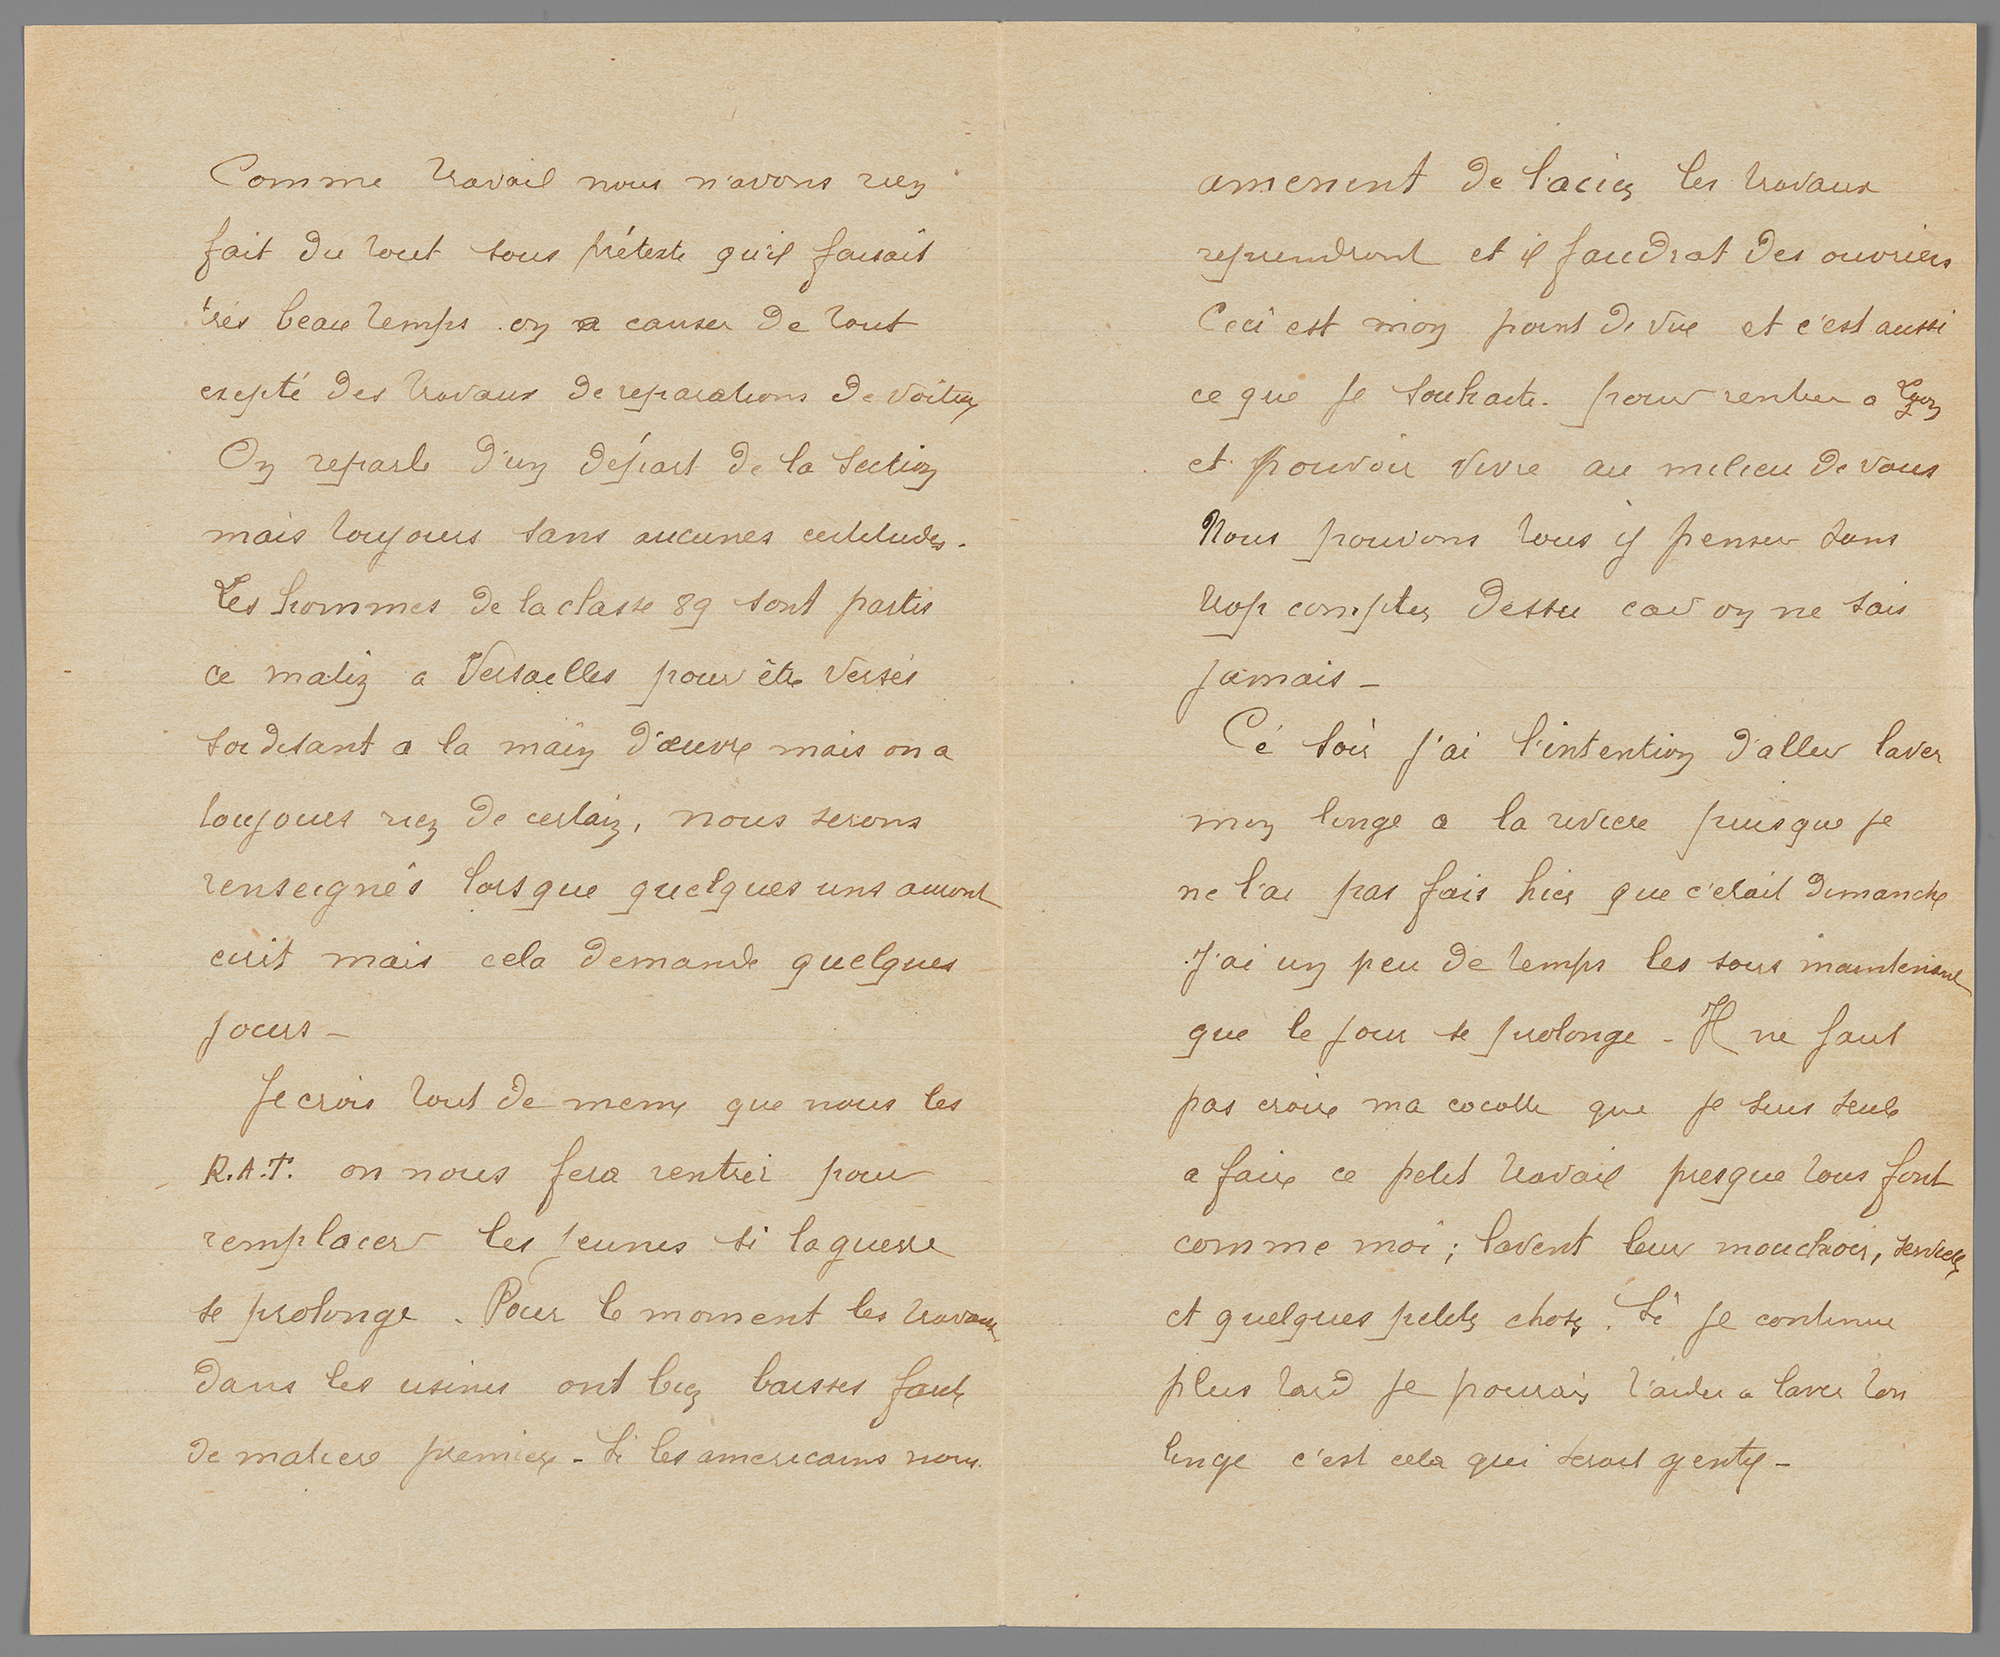 Comme travail nous n'avons rien
fait du tout sous prétexte qu'il faisait
très beau temps on a causer de tout
exepté des travaux de reparations de voiture
On reparle d'un départ de la Section
mais toujours sans aucunes certitudes.
Les hommes de la classe 89 sont partis
ce matin a Versailles pour être versés
soi disant a la main d'œuvre mais on a
toujours rien de certain, nous serons
renseignés lorsque quelques uns auront
ecrit mais cela demande quelques
jours –
Je crois tout de meme que nous les
R.A.T. on nous fera rentrer pour
remplacer les jeunes si la guerre
se prolonge . Pour le moment les travaux
dans les usines ont bien baisses faute
de matiere premiere – Si les americains nous
amenent de l'acier les travaux
reprendront et il faudrat des ouvriers
Ceci est mon point de vue et c'est aussi
ce que je souhaite. pour rentrer a Lyon
et pouvoir vivre au milieu de vous
Nous pouvons tous y penser sans
trop compter dessu car on ne sais
jamais –
Cé soir j'ai l'intention d'aller laver
mon linge a la riviere puisque je
ne l'ai pas fais hier que c'etait dimanche
J'ai un peu de temps les soirs maintenant
que le jour se prolonge – Il ne faut
pas croire ma cocotte que je suis seule
a faire ce petit travail presque tous font
comme moi ; lavent leur mouchoir, serviette
et quelques petites choses . Si je continue
plus tard je pourrais t'aider a laver ton
linge c'est cela qui serait gentil –